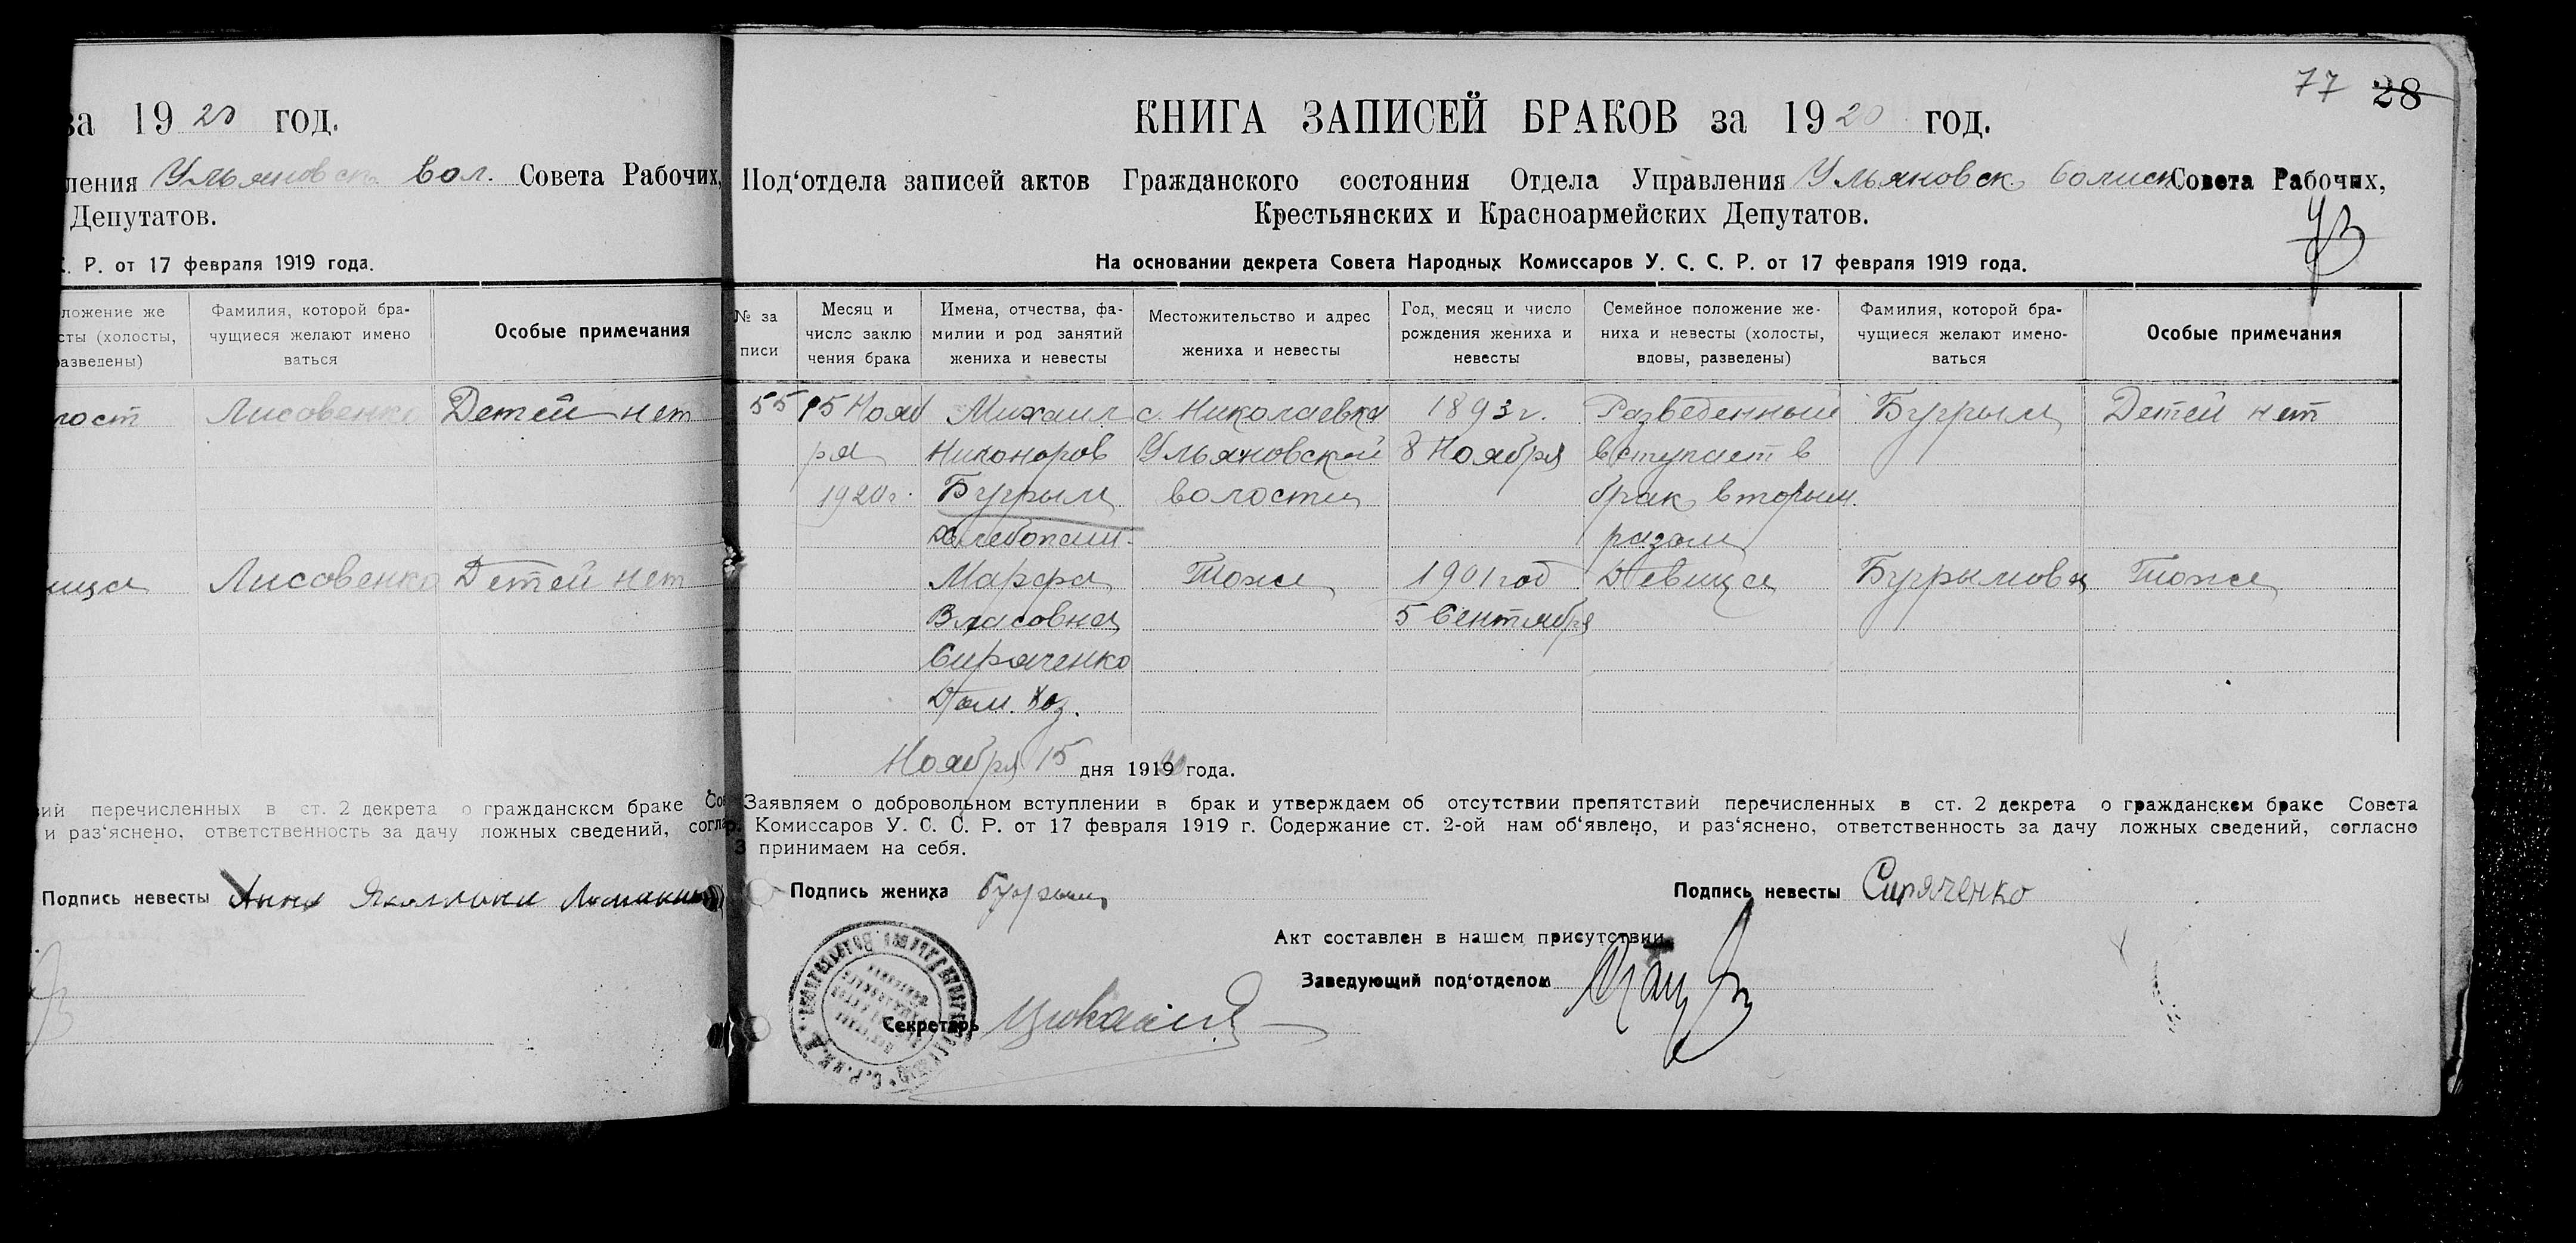 за 1920 год.
ления Ульяновск. вол. Совета Рабочих,
Депутатов.
С. Р. от 17 февраля 1919 года.
ложение же
сты (холосты,
разведены)
Фамилия, которой бра-
чущиеся желают имено
ваться
Особые примечания
лост Лисовенко Детей нет
ица Лисовенко Детей нет
вий перечисленных в ст. 2 декрета о гражданском браке Сов
и раз‘яснено, ответственность за дачу ложных сведений, согла
Подпись невесты Анна
77 28
КНИГА ЗАПИСЕЙ БРАКОВ за 1920 год.
Под‘отдела записей актов Гражданского состояния Отдела Управления Ульяновск. Совета Рабочих,
Крестьянских и Красноармейских Депутатов.
На основании декрета Совета Народных Комиссаров У. С. С. Р. от 17 февраля 1919 года.
№ за
писи
Месяц и
число заклю
чения брака
Имена, отчества, фа-
милии и род занятий
жениха и невесты
Местожительство и адрес
жениха и невесты
Год, месяц и число
рождения жениха и
невесты
Семейное положение же-
ниха и невесты (холосты,
вдовы, разведены)
Фамилия, которой бра-
чущиеся желают имено-
ваться
Особые примечания
55 15 Нояб Михаил с. Николаевка 1893 г. Разведенный Бугрым Детей нет
ря Никоноров Ульяновской 8 Ноября вступает в
1920 г. Бугрым волости брак вторым
Хлебопаш. разом
Марфа Тоже 1901 год Девица Бугрымова Тоже
Власовна 5 Сентября
Сиряченко
Дом. хоз.
Ноября 15 дня 1919 20 года.
Заявляем о добровольном вступлении в брак и утверждаем об отсутствии препятствий перечисленных в ст. 2 декрета о гражданском браке Совета
р. Комиссаров У. С. С. Р. от 17 февраля 1919 г. Содержание ст. 2-ой нам об‘явлено, и раз‘яснено, ответственность за дачу ложных сведений, согласно
3 принимаем на себя.
Подпись жениха Бугрым
Подпись невесты Сиряченко
Акт составлен в нашем присутствии
Заведующий под‘отделом
Секретарь